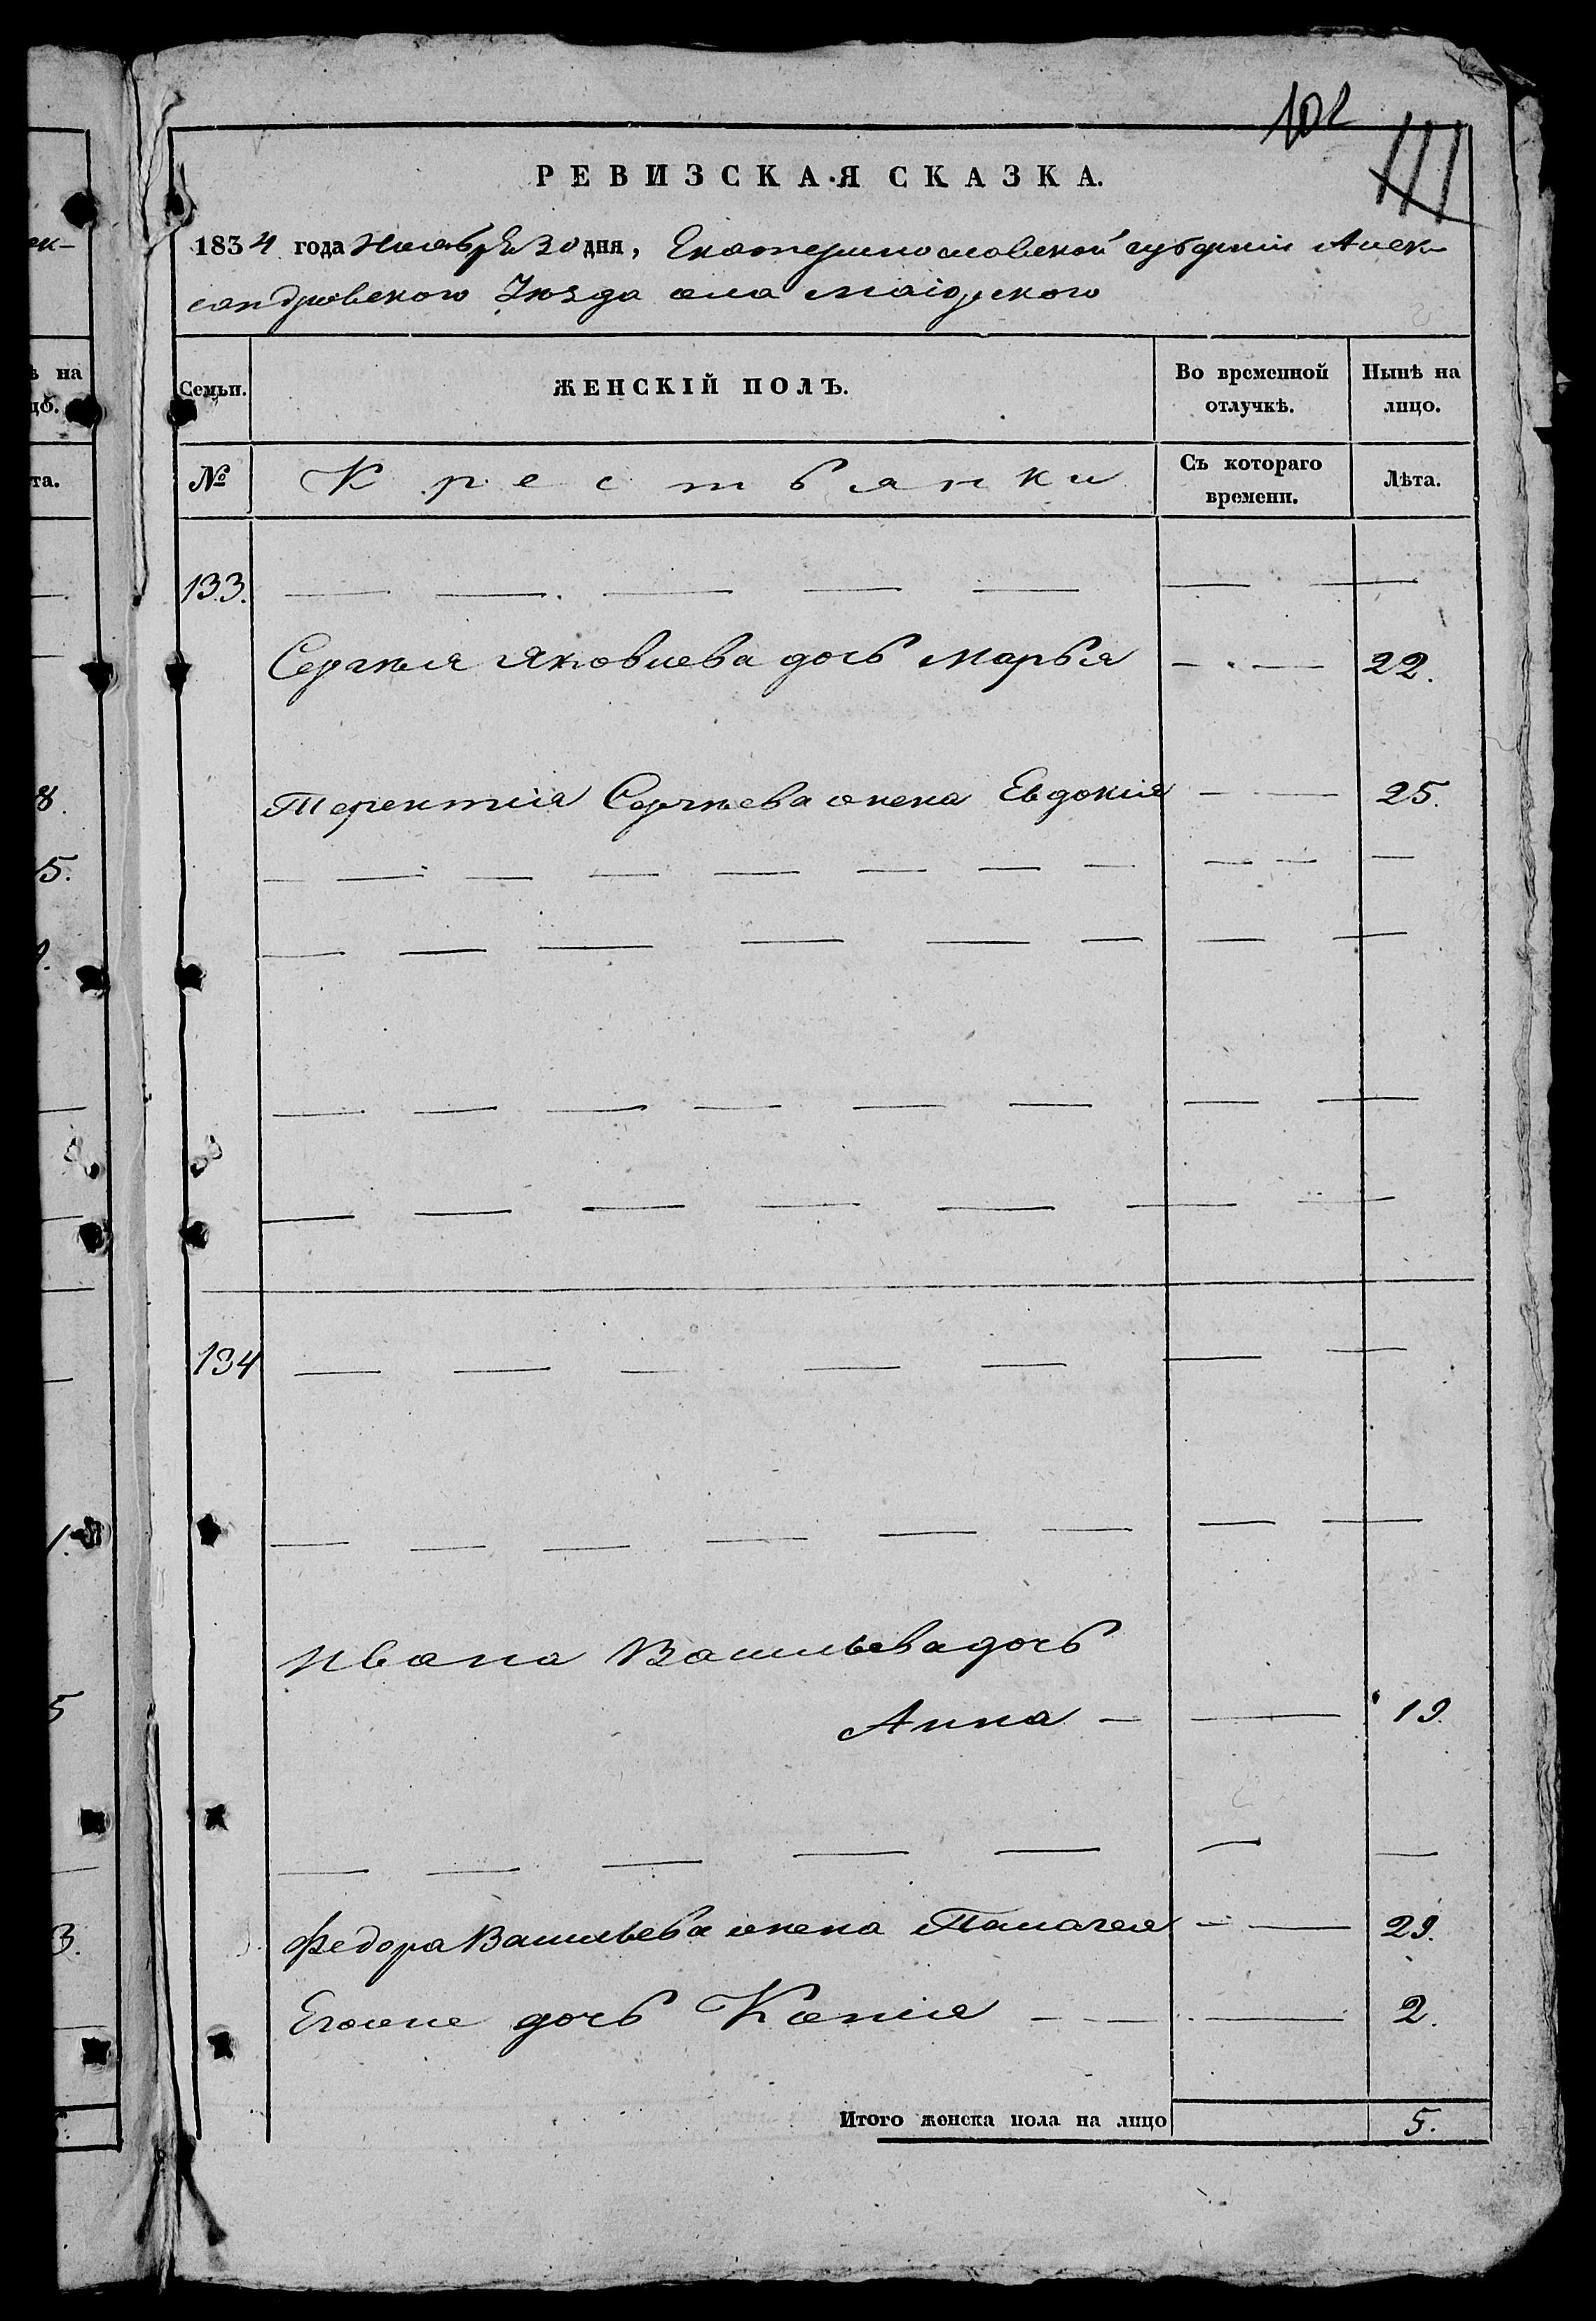 102
111
РЕВИЗСКАЯ СКАЗКА.
1834 года Ноября 30 дня, Екатеринославской губернiи Алек-
сандровского Уѣзда села Маiорского
Семьи. ЖЕНСКІЙ ПОЛЪ. Во временной отлучкѣ. Нынѣ на лицо.
№ Крестьянки Съ котораго времени. Лѣта.
133.
Сергѣя Яковлева дочь Марья 22.
Терентiя Сергѣева жена Евдокiя 25.
134
Ивана Васильева дочь
Анна 19.
Федора Васильева жена Палагея 29.
Егоже дочь Ксенiя 2.
Итого женска пола на лицо 5.